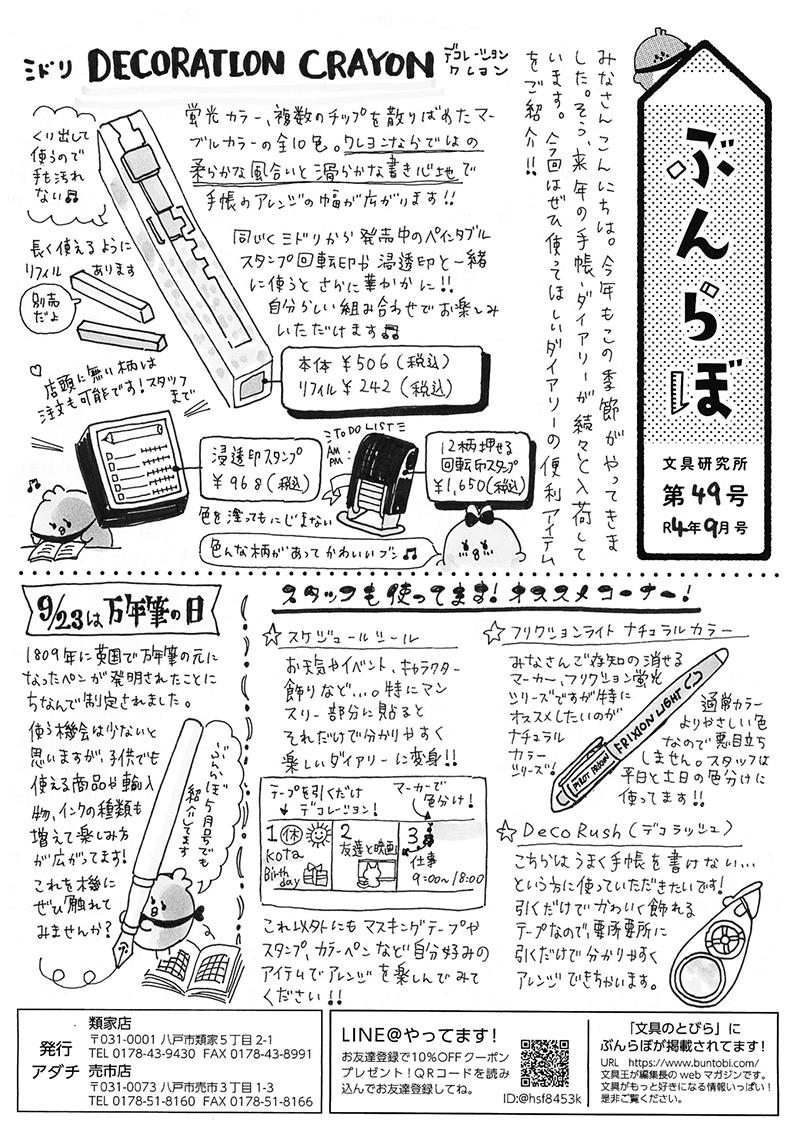 ぶんらぼ
文具研究所
第49号
R4年9月号
みなさんこんにちは。今年もこの季節がやってきま
した。そう、来年の手帳・ダイアリーが続々と入荷して
います。今回はぜひ使ってほしいダイアリーの便利アイテム
をご紹介!!
ミドリ DECORATION CRAYON デコレーション
クレヨン
蛍光カラー、複数のチップを散りばめたマー
ブルカラーの全10色。クレヨンならではの
柔らかな風合いと滑らかな書き心地で
手帳のアレンジの幅が広がります!!
くり出して
使うので
手も汚れ
ない♫
長く使えるように
リフィルあります
別売
だよ
同じくミドリから発売中のペインタブル
スタンプ回転印や浸透印と一緒
に使うとさらに華やかに!!
自分らしい組み合わせでお楽しみ
いただけます♫
本体 ¥506(税込)
リフィル ¥242(税込)
♡店頭に無い柄は
注文も可能です!スタッフ
まで
浸透印スタンプ
¥968(税込)
TO DO LIST
AM
PM
12柄押せる
回転印スタンプ
¥1,650(税込)
色を塗ってもにじまない
色んな柄があってかわいいブン♫
9/23は万年筆の日
1809年に英国で万年筆の元に
なったペンが発明されたことに
ちなんで制定されました。
使う機会は少ないと
思いますが、子供でも
使える商品や輸入
物、インクの種類も
増えて楽しみ方
が広がってます!
これを機に
ぜひ触れて
みませんか?
ぶんらぼ5月号でも
紹介してます
スタッフも使ってます!オススメコーナー!
☆スケジュールシール
お天気やイベント、キャラクター
飾りなど…。特にマン
スリー部分に貼ると
それだけで分かりやすく
楽しいダイアリーに変身!!
テープを引くだけ
デコレーション!
マーカーで
色分け!
1 休
kota
Birth
day
2
友達と映画
3
仕事
9:00~18:00
これ以外にもマスキングテープや
スタンプ、カラーペンなど自分好みの
アイテムでアレンジを楽しんでみて
ください!!
☆フリクションライト ナチュラルカラー
みなさんご存知の消せる
マーカー、フリクション蛍光
シリーズですが特に
オススメしたいのが
ナチュラル
カラー
シリーズ!
FRIXION LIGHT
PILOT FRIXION
通常カラー
よりやさしい色
なので悪目立ち
しません。スタッフは
平日と土日の色分けに
使ってます!!
☆Deco Rush(デコラッシュ)
こちらはうまく手帳を書けない…
という方に使っていただきたいです!
引くだけでかわいく飾れる
テープなので、要所要所に
引くだけで分かりやすく
アレンジできちゃいます。
発行
アダチ
類家店
〒031-0001 八戸市類家5丁目2-1
TEL 0178-43-9430 FAX 0178-43-8991
売市店
〒031-0073 八戸市売市3丁目1-3
TEL 0178-51-8160 FAX 0178-51-8166
LINE@やってます!
お友達登録で10%OFFクーポン
プレゼント!QRコードを読み
込んでお友達登録してね。
ID:@hsf8453k
「文具のとびら」に
ぶんらぼが掲載されてます!
URL https://www.buntobi.com/
文具王が編集長のwebマガジンです。
文具がもっと好きになる情報いっぱい!
是非ご覧ください。